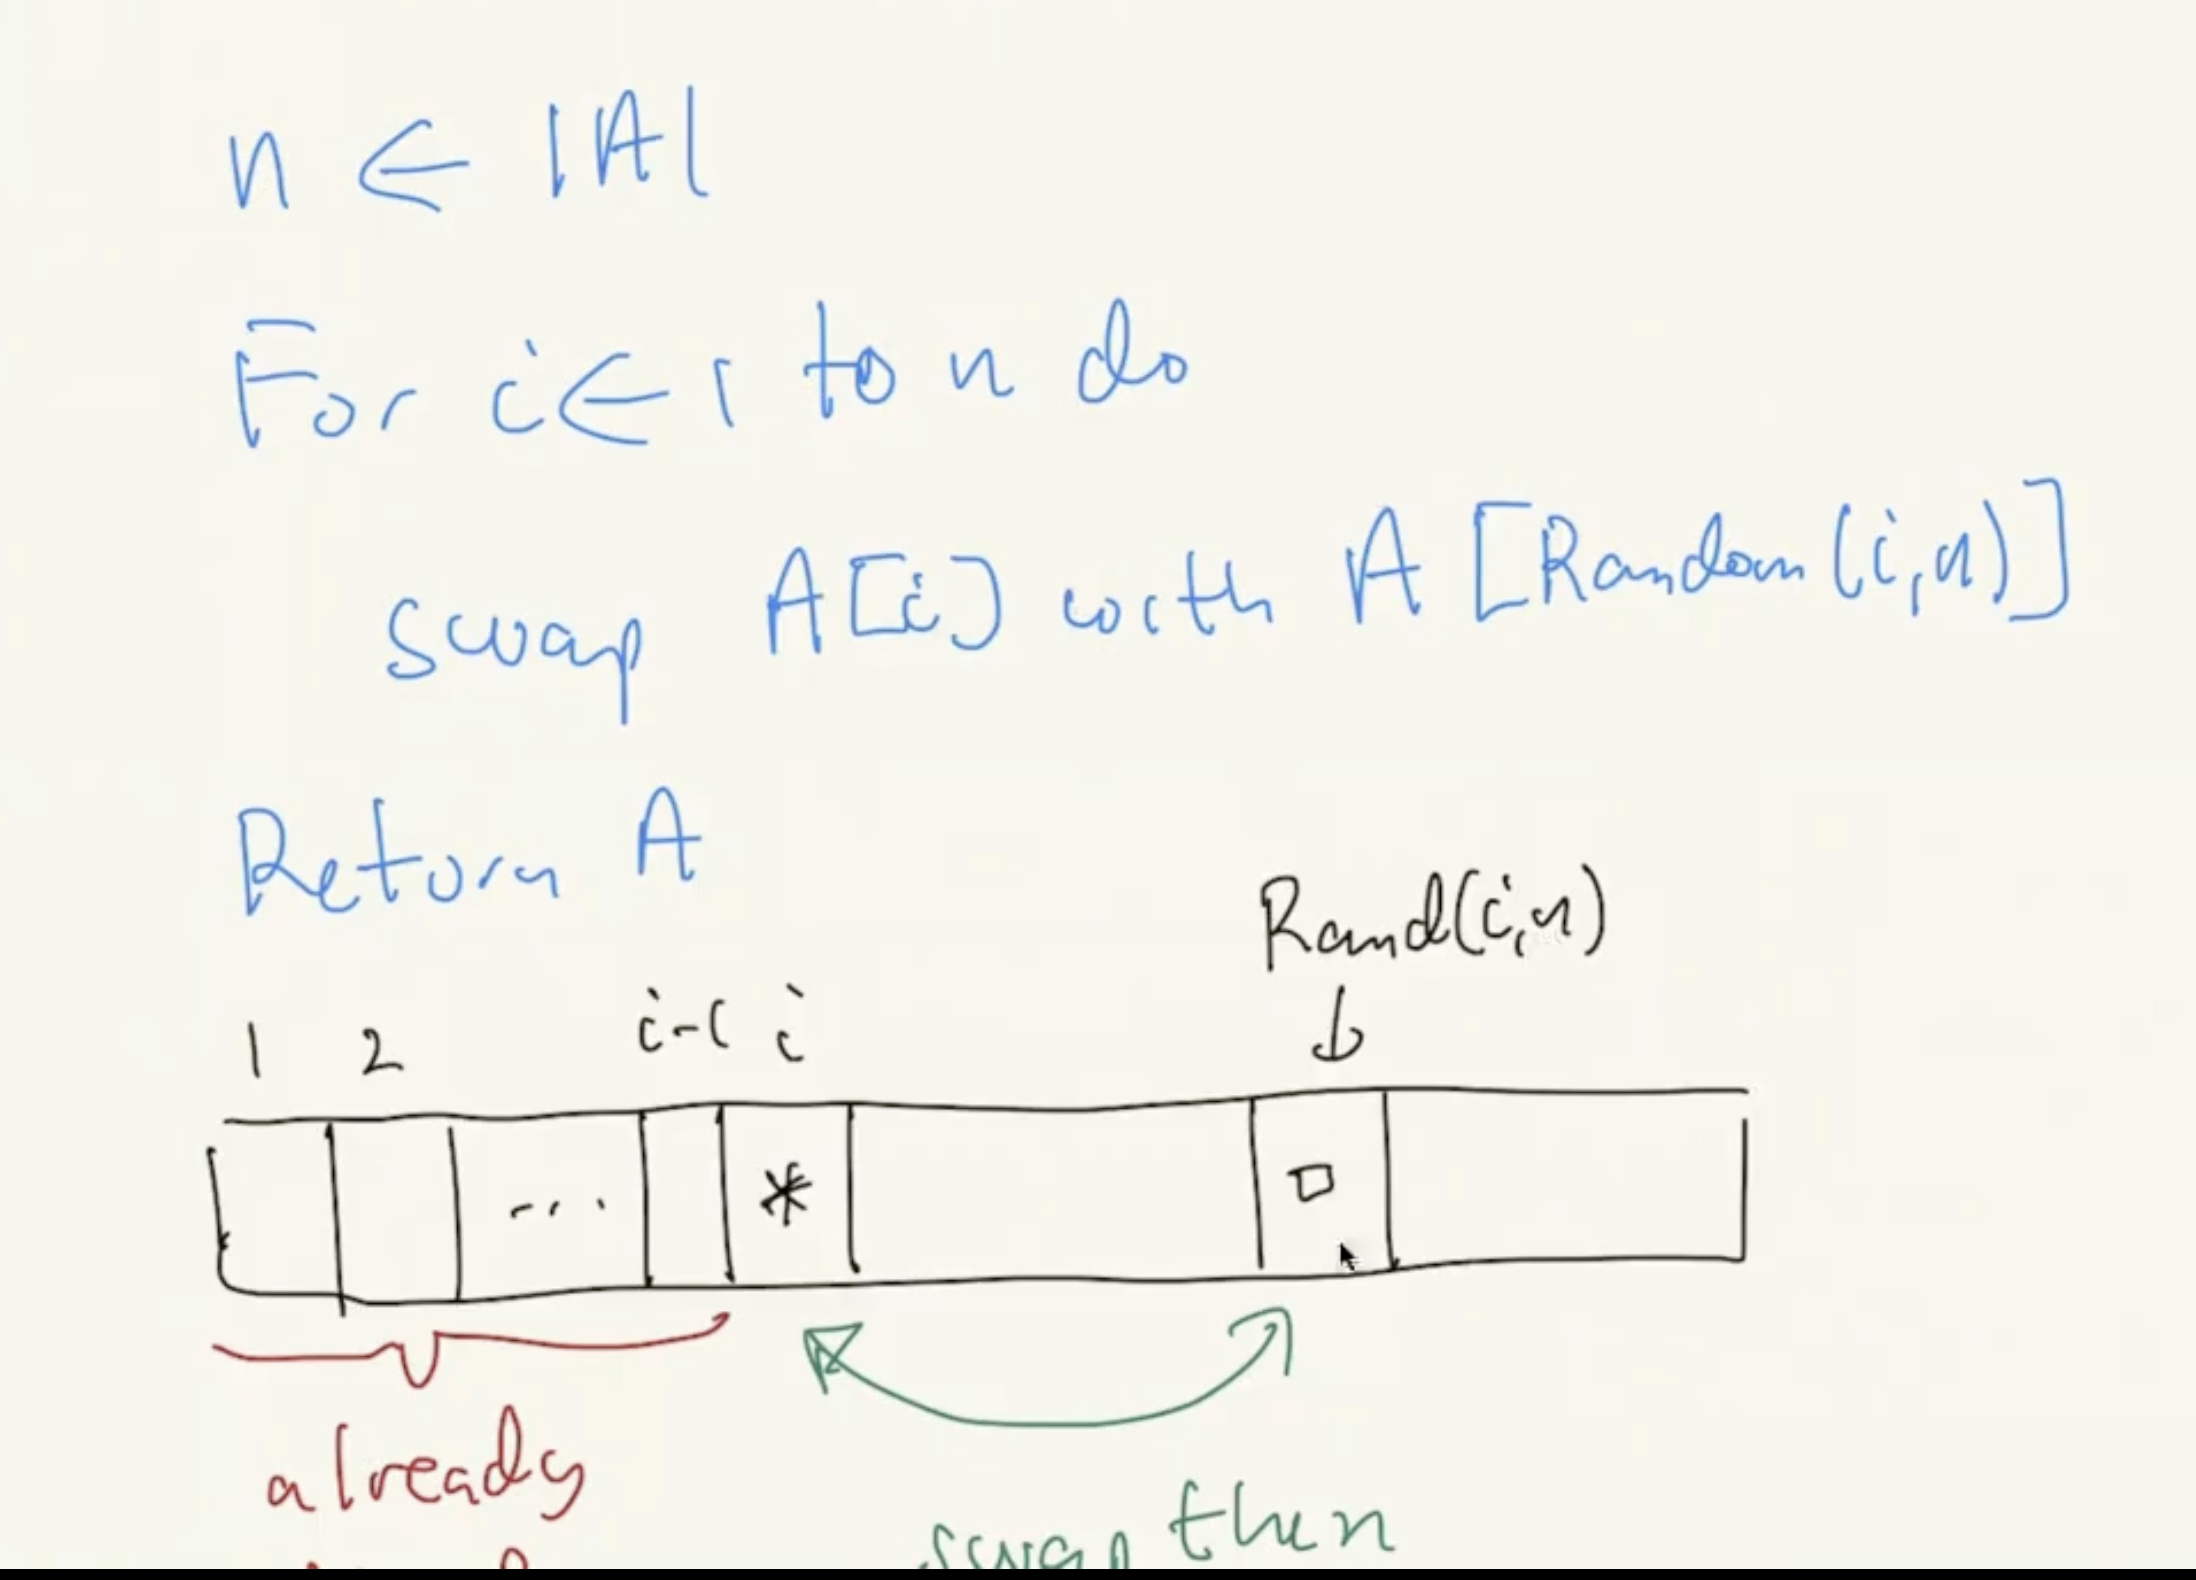 n ← |A|
For i ← 1 to n do
swap A[i] with A[Random(i,n)]
Return A
Rand(i,n)
1 2 i-1 i ↓
... * □
already
swap then